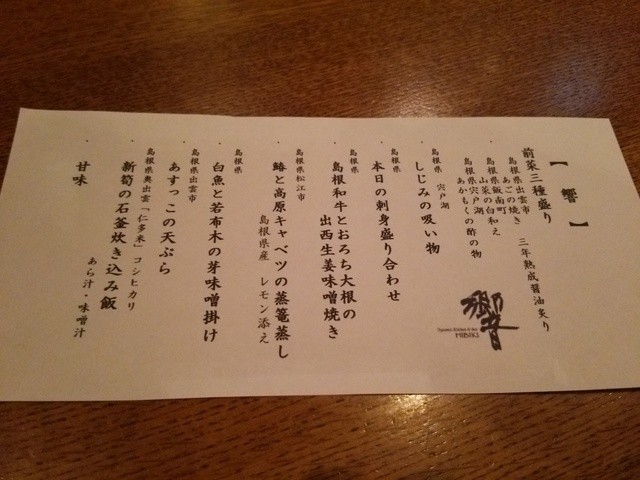 【 響 】
前菜三種盛り
島根県出雲市
あごの焼き 三年熟成醤油炙り
島根県飯南町
山菜の白和え
島根県宍戸湖
あかもくの酢の物
島根県 宍戸湖
しじみの吸い物
島根県
本日の刺身盛り合わせ
島根県
島根和牛とおろち大根の
出西生姜味噌焼き
島根県松江市
鰆と高原キャベツの蒸篭蒸し
島根県産 レモン添え
島根県
白魚と若布木の芽味噌掛け
島根県出雲市
あすっこの天ぷら
島根県奥出雲「仁多米」コシヒカリ
新筍の石釜炊き込み飯
あら汁・味噌汁
甘味
響
Japanese Kitchen & Bar
HIBIKI